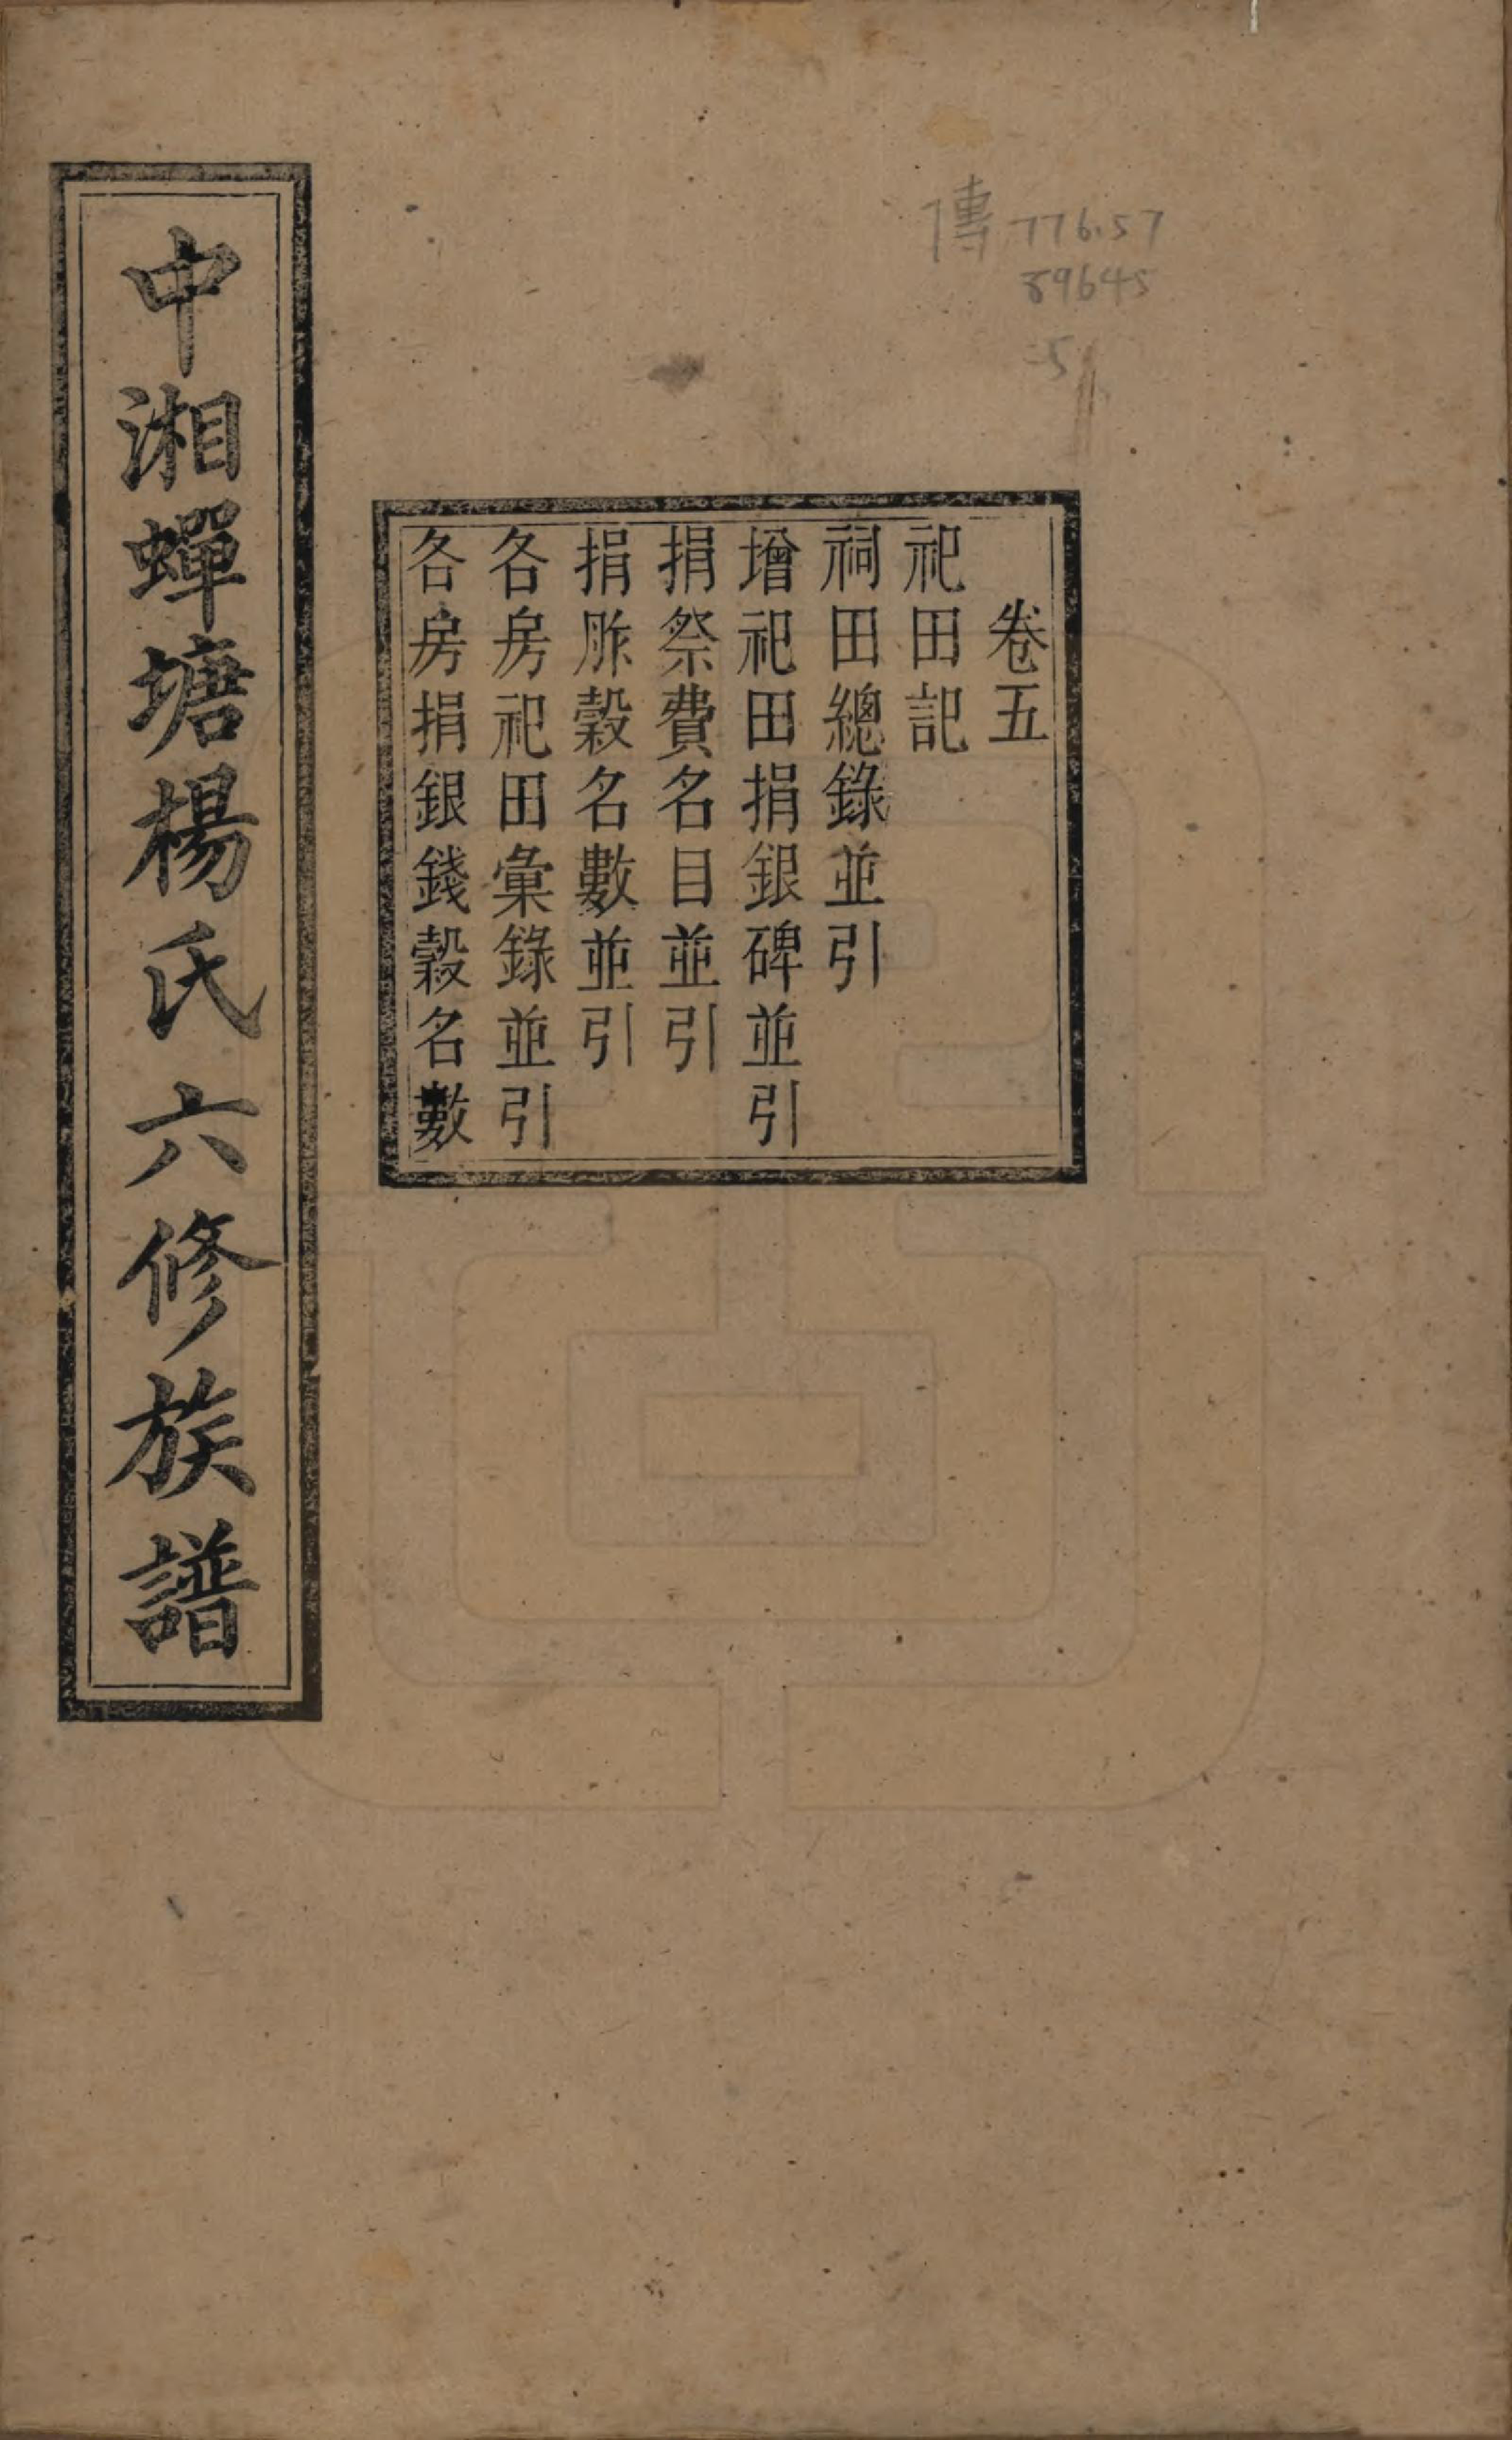 傳 776.57
89645
-5
卷五
祀田記
祠田總錄並引
增祀田捐銀碑並引
捐祭費名目並引
捐胙穀名數並引
各房祀田彙錄並引
各房捐銀錢穀名數
中湘蟬塘楊氏六修族譜